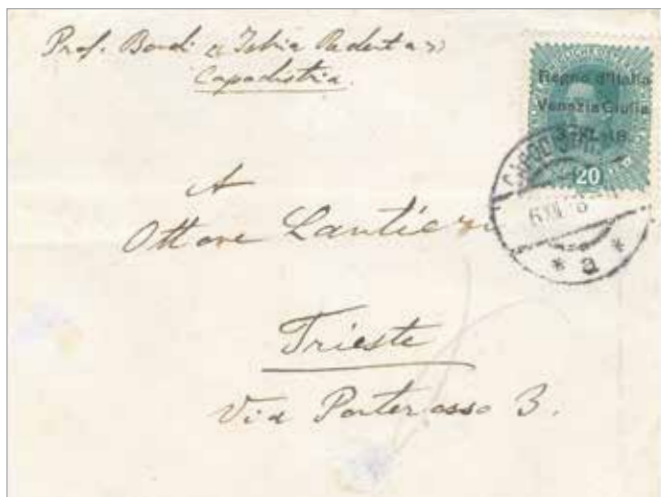 Prof. Bondi "Istria Redenta"
Capodistria.
Regno d'Italia
Venezia Giulia
3. XI. 18.
20
CAPODISTRIA
6 XII 8
* a *
A
Ottone Lantieri
Trieste
Via Ponterosso 3.